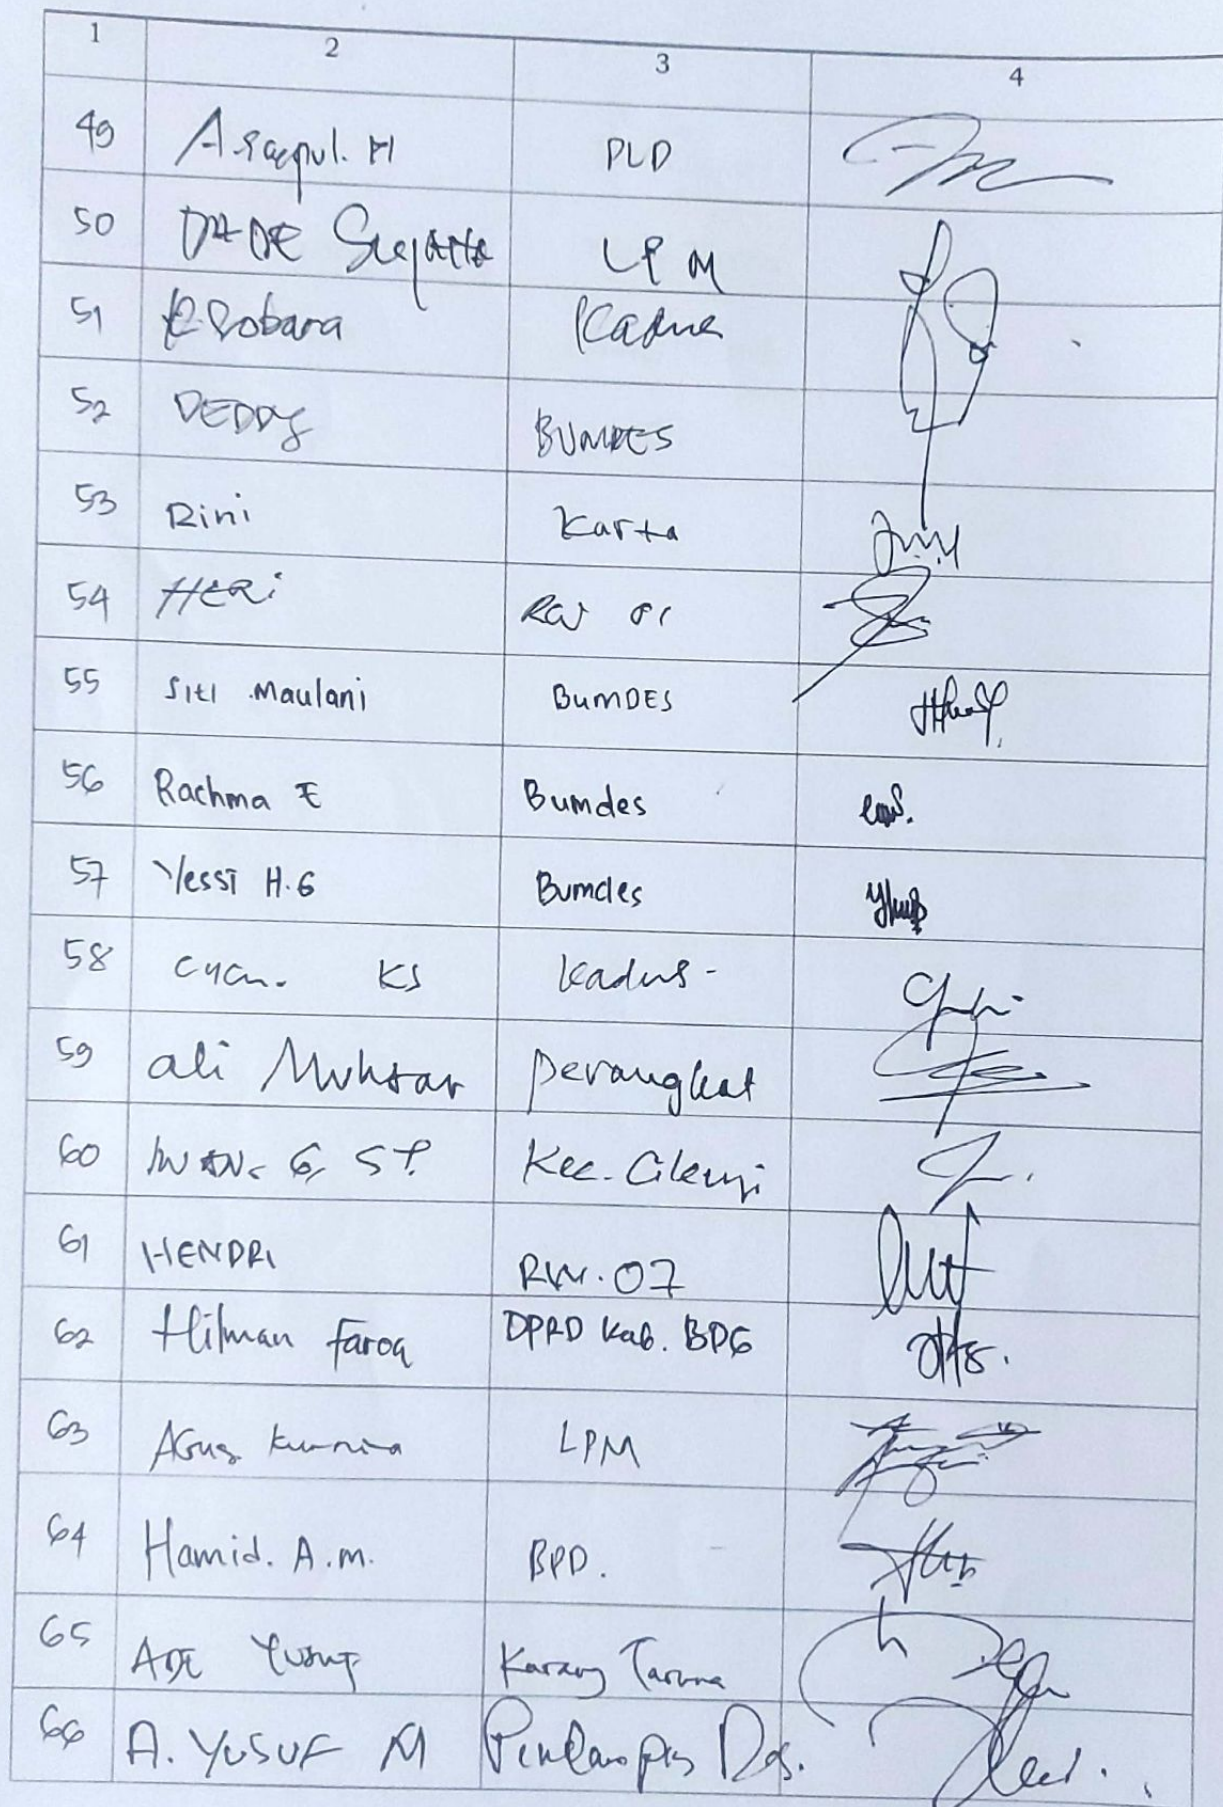 1 2 3 4
49 A. Saepul. H PLD
50 DADE Sujana LPM
51 E. Sobana Kadus
52 DEDDY BUMDES
53 Rini Karta
54 HERi RW 01
55 Siti Maulani BumDES
56 Rachma E Bumdes
57 Yessi H.G Bumdes
58 KS Kadus -
59 ali Muhtar perangkat
60 IWAN. G, ST. Kec. Cileunyi
61 HENDRI RW. 07
62 Hilman Faroq DPRD Kab. BDG
63 Agus Kurnia LPM
64 Hamid. A.m. BPD.
65 ADE Yusup Karang Taruna
66 A. YUSUF M